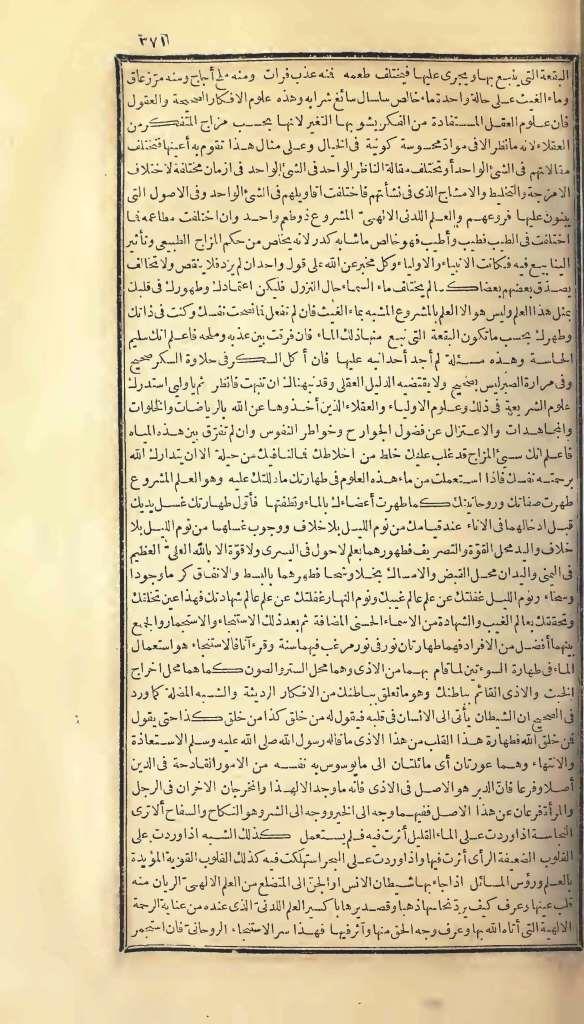 ٣٧١
البقعة التي ينبع بها ويجرى عليها فيختلف طعمه فنه عذب فرات ومنه ملح أجاج ومنه مرّ زعاق
وماء الغيث على حالة واحدة ماء خالص سلسال سائغ شرابه وهذه علوم الافكار الصحيحة والعقول
فان علوم العقل المستفادة من الفكر يشوبها التغير لانها بحسب مزاج المتفكر من
العقلاء لانه ما نظر الا في موادّ محسوسة كونية في الخيال وعلى مثال هذا تقوم به أعينها فتختلف
مقالاتهم في الشئ الواحد أو تختلف مقالة الناظر الواحد في الشئ الواحد في ازمان مختلفة لاختلاف
الامزجة والتخليط والامشاج الذى في نشأتهم فاختلفت اقاويلهم في الشئ الواحد وفى الاصول التي
يبنون عليها فروعهم والعلم اللدنى الالهىّ المشروع ذو طعم واحد وان اختلفت مطاعمه فما
اختلفت في الطيب فطيب وأطيب فهو خالص ما شابه كدر لانه تخلص من حكم المزاج الطبيعى وتأثير
الينابيع فيه فكانت الانبياء والاولياء وكل مخبر عن الله على قول واحد ان لم يزد فلا ينقص ولا يخالف
يصدّق بعضهم بعضا كما لم يختلف ماء السماء حال النزول فليكن اعتمادك وطهورك في قلبك
بمثل هذا العلم وليس هو الا العلم بالمشروع المشبه بماء الغيث فان لم تفعل فما نصحت نفسك وكنت في ذاتك
وطهرك بحسب ما تكون البقعة التي نبع منها ذلك الماء فان فرقت بين عذبه وملحه فاعلم انك سليم
الحاسة وهذه مسئلة لم أجد أحدا نبه عليها فان آكل السكر في حلاوة السكر صحيح
وفى مرارة الصبر ليس بصحيح ولا يقتضيه الدليل العقلى وقد نبهناك ان تنبهت فانظر ثم يا ولى استدرك
علوم الشريعة في ذلك وعلوم الاولياء والعقلاء الذين أخذوها عن الله بالرياضات والخلوات
والمجاهدات والاعتزال عن فضول الجوارح وخواطر النفوس وان لم تفرّق بين هذه المياه
فاعلم انك سئ المزاج قد غلب عليك خلط من اخلاطك فما لنا فيك من حيلة الا ان يتداركك الله
برحمته نفسك فاذا استعملت من ماء هذه العلوم في طهارتك ما دللتك عليه وهو العلم المشروع
طهرت صفاتك وروحانيتك كما طهرت أعضاءك بالماء ونظفتها فأوّل طهارتك غسل يديك
قبل ادخالهما في الاناء عند قيامك من نوم الليل بلا خلاف ووجوب غسلهما من نوم الليل بلا
خلاف واليد محل القوّة والتصريف فطهورهما بعلم لا حول في اليسرى ولا قوّة الا بالله العلىّ العظيم
في اليمنى واليدان محل القبض والامساك بخلا وشحا فطهرهما بالبسط والانفاق كرما وجودا
وسخاء ونوم الليل غفلتك عن علم عالم غيبك ونوم النهار غفلتك عن علم عالم شهادتك فهذا عين تخلقك
وتحققك بعالم الغيب والشهادة من الاسماء الحسنى المضافة ثم بعد ذلك الاستنجاء والاستجمار والجمع
بينهما أفضل من الافراد فهما طهارتان نور في نور مرغب فيهما سنة وقرءآنا فالاستنجاء هو استعمال
الماء في طهارة السوءتين لما قام بهما من الاذى وهما محل الستر والصون كما هما محل اخراج
الخبث والاذى القائم بباطنك وهو ما تعلق بباطنك من الافكار الرديئة والشبه المضلة كما ورد
في الصحيح ان الشيطان يأتى الى الانسان في قلبه فيقول له من خلق كذا من خلق كذا حتى يقول
فمن خلق الله فطهارة هذا القلب من هذا الاذى ما قاله رسول الله صلى الله عليه وسلم الاستعاذة
والانتهاء وهما عورتان أى مائلتان الى ما يوسوس به نفسه من الامور القادحة في الدين
أصلا وفرعا فانّ الدبر هو الاصل في الاذى فانّه ما وجد الا لهذا والمخرجان الاخران في الرجل
والمرأة فرعان عن هذا الاصل ففيهما وجه الى الخير ووجه الى الشر وهو النكاح والسفاح ألا ترى
النجاسة اذا وردت على الماء القليل أثرت فيه فلم يستعمل كذلك الشبه اذا وردت على
القلوب الضعيفة الرأى أثرت فيها واذا وردت على البحر استهلكت فيه كذلك القلوب القوية المؤيدة
بالعلم وروح القدس اذا جاء بها شيطان الانس او الجنّ الى المتضلع من العلم الالهىّ الريان منه
قلب عينها وعرف كيف يردّ نحاسها ذهبا وقصديرها باكسير العلم اللدنىّ الذى عنده من عناية الرحمة
الالهية التي أتاه الله بها وعرف وجه الحق منها وآثر فيها فهذا سر الاستنجاء الروحانىّ فان استجمر